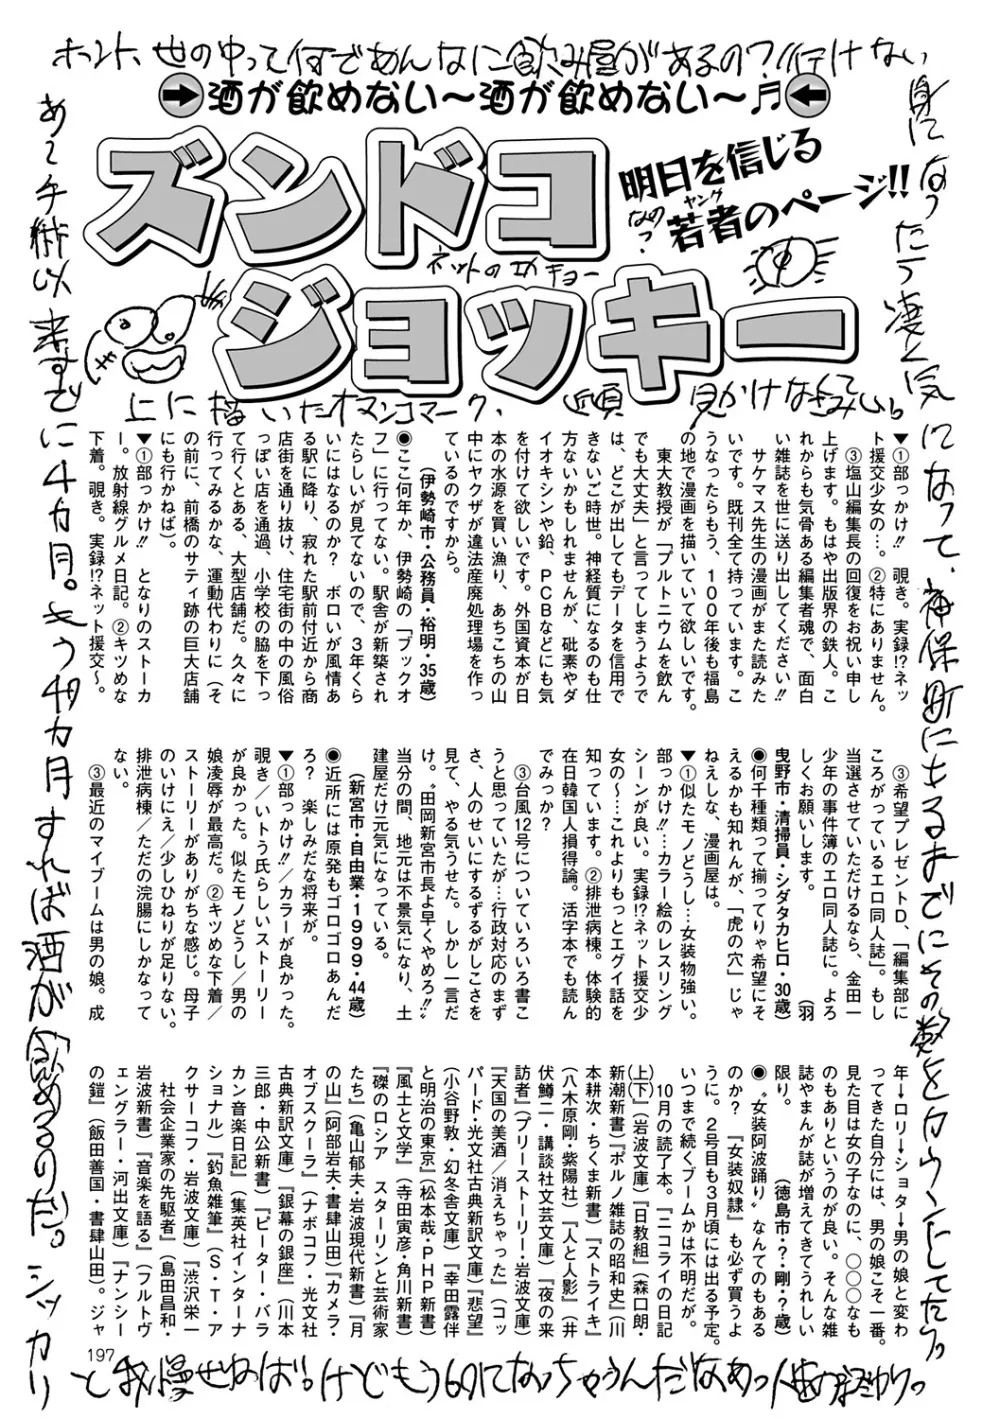 ホント、世の中って何であんなに飲み屋があるの?行けない
酒が飲めない〜酒が飲めない〜♬
ズンドコ
ジョッキー
明日を信じる
若者のページ!!
ヤング
なめ?
上に描いたオマンコマーク、
▼①部っかけ!! 覗き。実録!?ネッ
ト援交少女の…。②特にありません。
③塩山編集長の回復をお祝い申し
上げます。もはや出版界の鉄人。こ
れからも気骨ある編集者魂で、面白
い雑誌を世に送り出してください!!
サケマス先生の漫画がまた読みた
いです。既刊全て持っています。こ
うなったらもう、100年後も福島
の地で漫画を描いていて欲しいです。
東大教授が「プルトニウムを飲ん
でも大丈夫」と言ってしまうようで
は、どこが出してもデータを信用で
きないご時世。神経質になるのも仕
方ないかもしれませんが、砒素やダ
イオキシンや鉛、PCBなどにも気
を付けて欲しいです。外国資本が日
本の水源を買い漁り、あちこちの山
中にヤクザが違法産廃処理場を作っ
ているのですから。
(伊勢崎市・公務員・裕明・35歳)
◉ここ何年か、伊勢崎の「ブックオ
フ」に行ってない。駅舎が新築され
たらしいが見てないので、3年くら
いにはなるのか? ボロいが風情あ
る駅に降り、寂れた駅前付近から商
店街を通り抜け、住宅街の中の風俗
っぽい店を通過、小学校の脇を下っ
て行くとある、大型店舗だ。久々に
行ってみるかな、運動代わりに(そ
の前に、前橋のサティ跡の巨大店舗
にも行かねば)。
▼①部っかけ!! となりのストーカ
ー。放射線グルメ日記。②キツめな
下着。覗き。実録!?ネット援交〜。
③希望プレゼントD、「編集部に
ころがっているエロ同人誌」。もし
当選させていただけるなら、金田一
少年の事件簿のエロ同人誌に。よろ
しくお願いします。 (羽
曳野市・清掃員・シダタカヒロ・30歳)
◉何千種類って揃ってりゃ希望にそ
えるかも知れんが、「虎の穴」じゃ
ねえしな、漫画屋は。
▼①似たモノどうし…女装物強い。
部っかけ!!…カラー絵のレスリング
シーンが良い。実録!?ネット援交少
女の〜…これよりもっとエグイ話を
知っています。②排泄病棟。体験的
在日韓国人損得論。活字本でも読ん
でみっか?
③台風12号についていろいろ書こ
うと思っていたが…行政対応のまず
さ、人のせいにするずるがしこさを
見て、やる気うせた。しかし一言だ
け。〝田岡新宮市長よ早くやめろ!!〟
当分の間、地元は不景気になり、土
建屋だけ元気になっている。
(新宮市・自由業・1999・44歳)
◉近所には原発もゴロゴロあんだ
ろ? 楽しみだな将来が。
▼①部っかけ!!/カラーが良かった。
覗き/いトう氏らしいストーリー
が良かった。似たモノどうし/男の
娘凌辱が最高だ。②キツめな下着/
ストーリーがありがちな感じ。母子
のいけにえ/少しひねりが足りない。
排泄病棟/ただの浣腸にしかなって
ない。
③最近のマイブームは男の娘。成
年→ロリ→ショタ→男の娘と変わ
ってきた自分には、男の娘こそ一番。
見た目は女の子なのに、〇〇〇なも
のもありというのが良い。そんな雑
誌やまんが誌が増えてきてうれしい
限り。 (徳島市・?・剛・?歳)
◉〝女装阿波踊り〟なんてのもある
のか? 『女装奴隷』も必ず買うよ
うに。2号目も3月頃には出る予定。
いつまで続くブームかは不明だが。
10月の読了本。『ニコライの日記
(上下)』(岩波文庫)『日教組』(森口朗・
新潮新書)『ポルノ雑誌の昭和史』(川
本耕次・ちくま新書)『ストライキ』
(八木原剛・紫陽社)『人と人影』(井
伏鱒二・講談社文芸文庫)『夜の来
訪者』(プリーストリー・岩波文庫)
『天国の美酒/消えちゃった』(コッ
パード・光文社古典新訳文庫)『悲望』
(小谷野敦・幻冬舎文庫)『幸田露伴
と明治の東京』(松本哉・PHP新書)
『風土と文学』(寺田寅彦・角川新書)
『磔のロシア スターリンと芸術家
たち』(亀山郁夫・岩波現代新書)『月
の山』(阿部岩夫・書肆山田)『カメラ・
オブスクーラ』(ナボコフ・光文社
古典新訳文庫)『銀幕の銀座』(川本
三郎・中公新書)『ピーター・バラ
カン音楽日記』(集英社インターナ
ショナル)『釣魚雑筆』(S・T・ア
クサーコフ・岩波文庫)『渋沢栄一
社会企業家の先駆者』(島田昌和・
岩波新書)『音楽を語る』(フルトヴ
ェングラー・河出文庫)『ナンシー
の鎧』(飯田善国・書肆山田)。ジャ
身になったら凄く気
になって、神保町に出るまでにその数をカウントしてたっ。
あ〜手術以来すでに4カ月。もう4カ月すれば酒が飲めるのだ。シッカリ
と我慢せねば!けどもう60になっちゃうんだなあっ
197